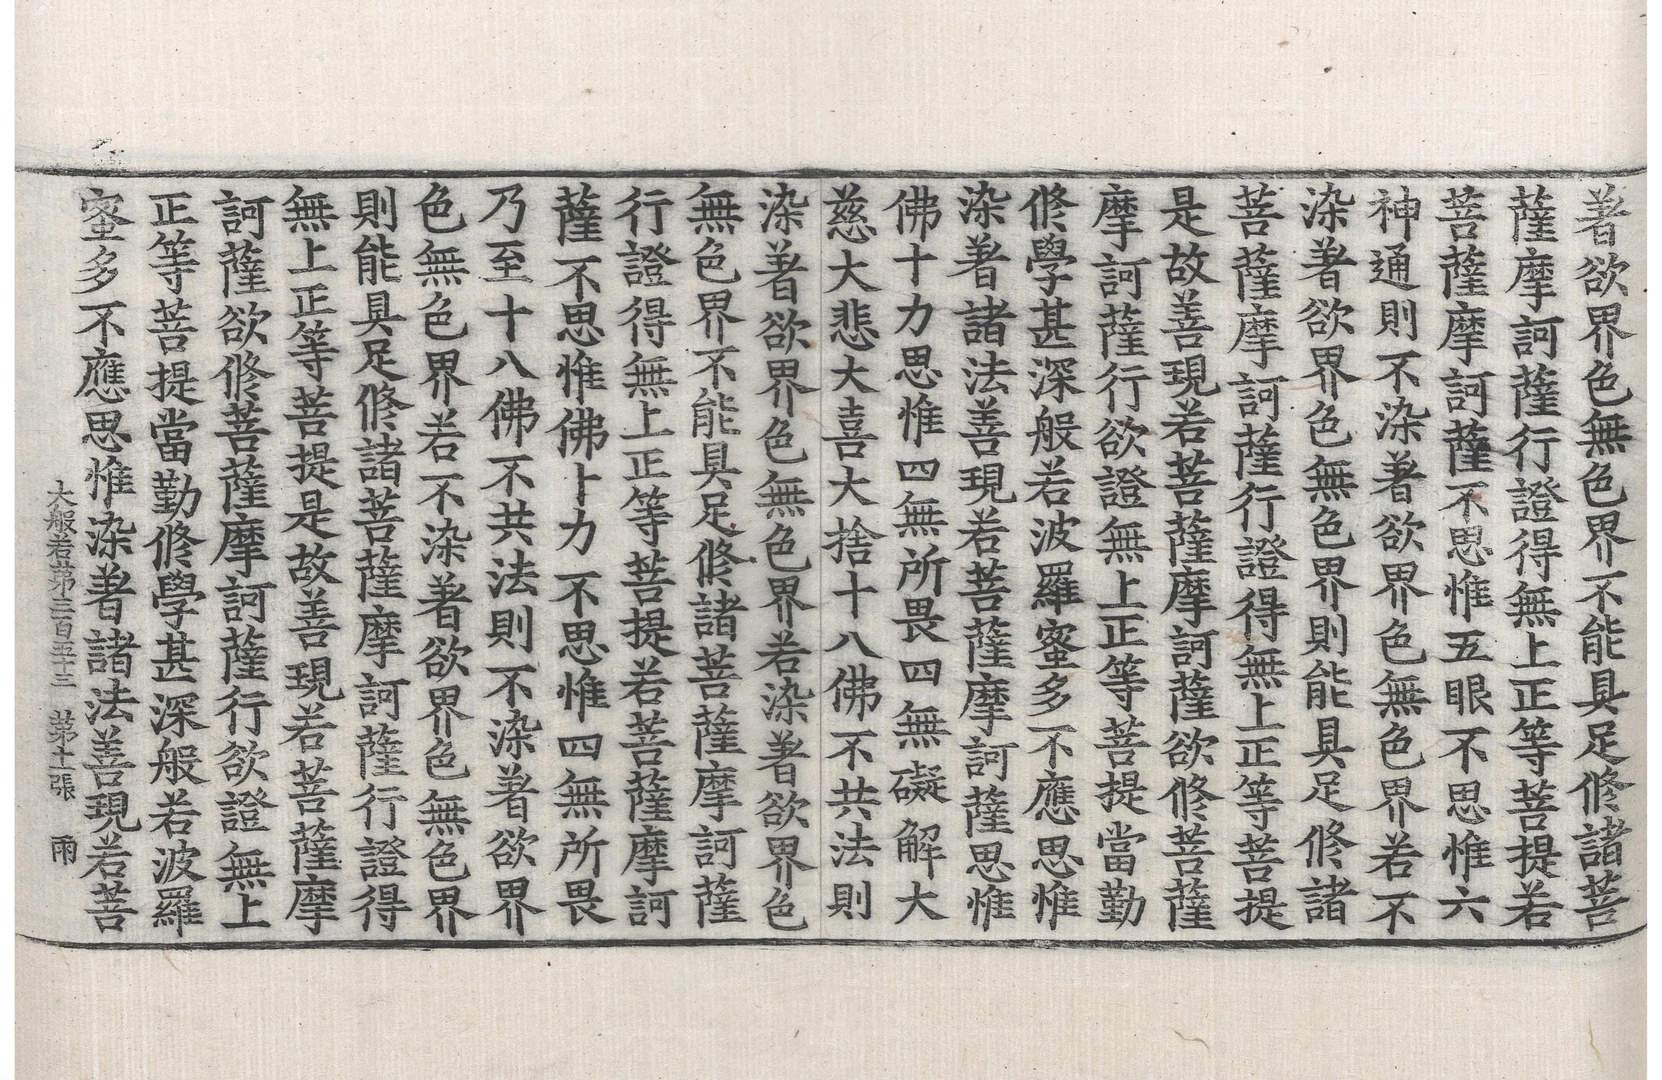 著欲界色無色界不能具足修諸菩
薩摩訶薩行證得無上正等菩提若
菩薩摩訶薩不思惟五眼不思惟六
神通則不染著欲界色無色界若不
染著欲界色無色界則能具足修諸
菩薩摩訶薩行證得無上正等菩提
是故善現若菩薩摩訶薩欲修菩薩
摩訶薩行欲證無上正等菩提當勤
修學甚深般若波羅蜜多不應思惟
染著諸法善現若菩薩摩訶薩思惟
佛十力思惟四無所畏四無礙解大
慈大悲大喜大捨十八佛不共法則
染著欲界色無色界若染著欲界色
無色界不能具足修諸菩薩摩訶薩
行證得無上正等菩提若菩薩摩訶
薩不思惟佛十力不思惟四無所畏
乃至十八佛不共法則不染著欲界
色無色界若不染著欲界色無色界
則能具足修諸菩薩摩訶薩行證得
無上正等菩提是故善現若菩薩摩
訶薩欲修菩薩摩訶薩行欲證無上
正等菩提當勤修學甚深般若波羅
蜜多不應思惟染著諸法善現若菩
大般若第三百五十三 第十張 雨